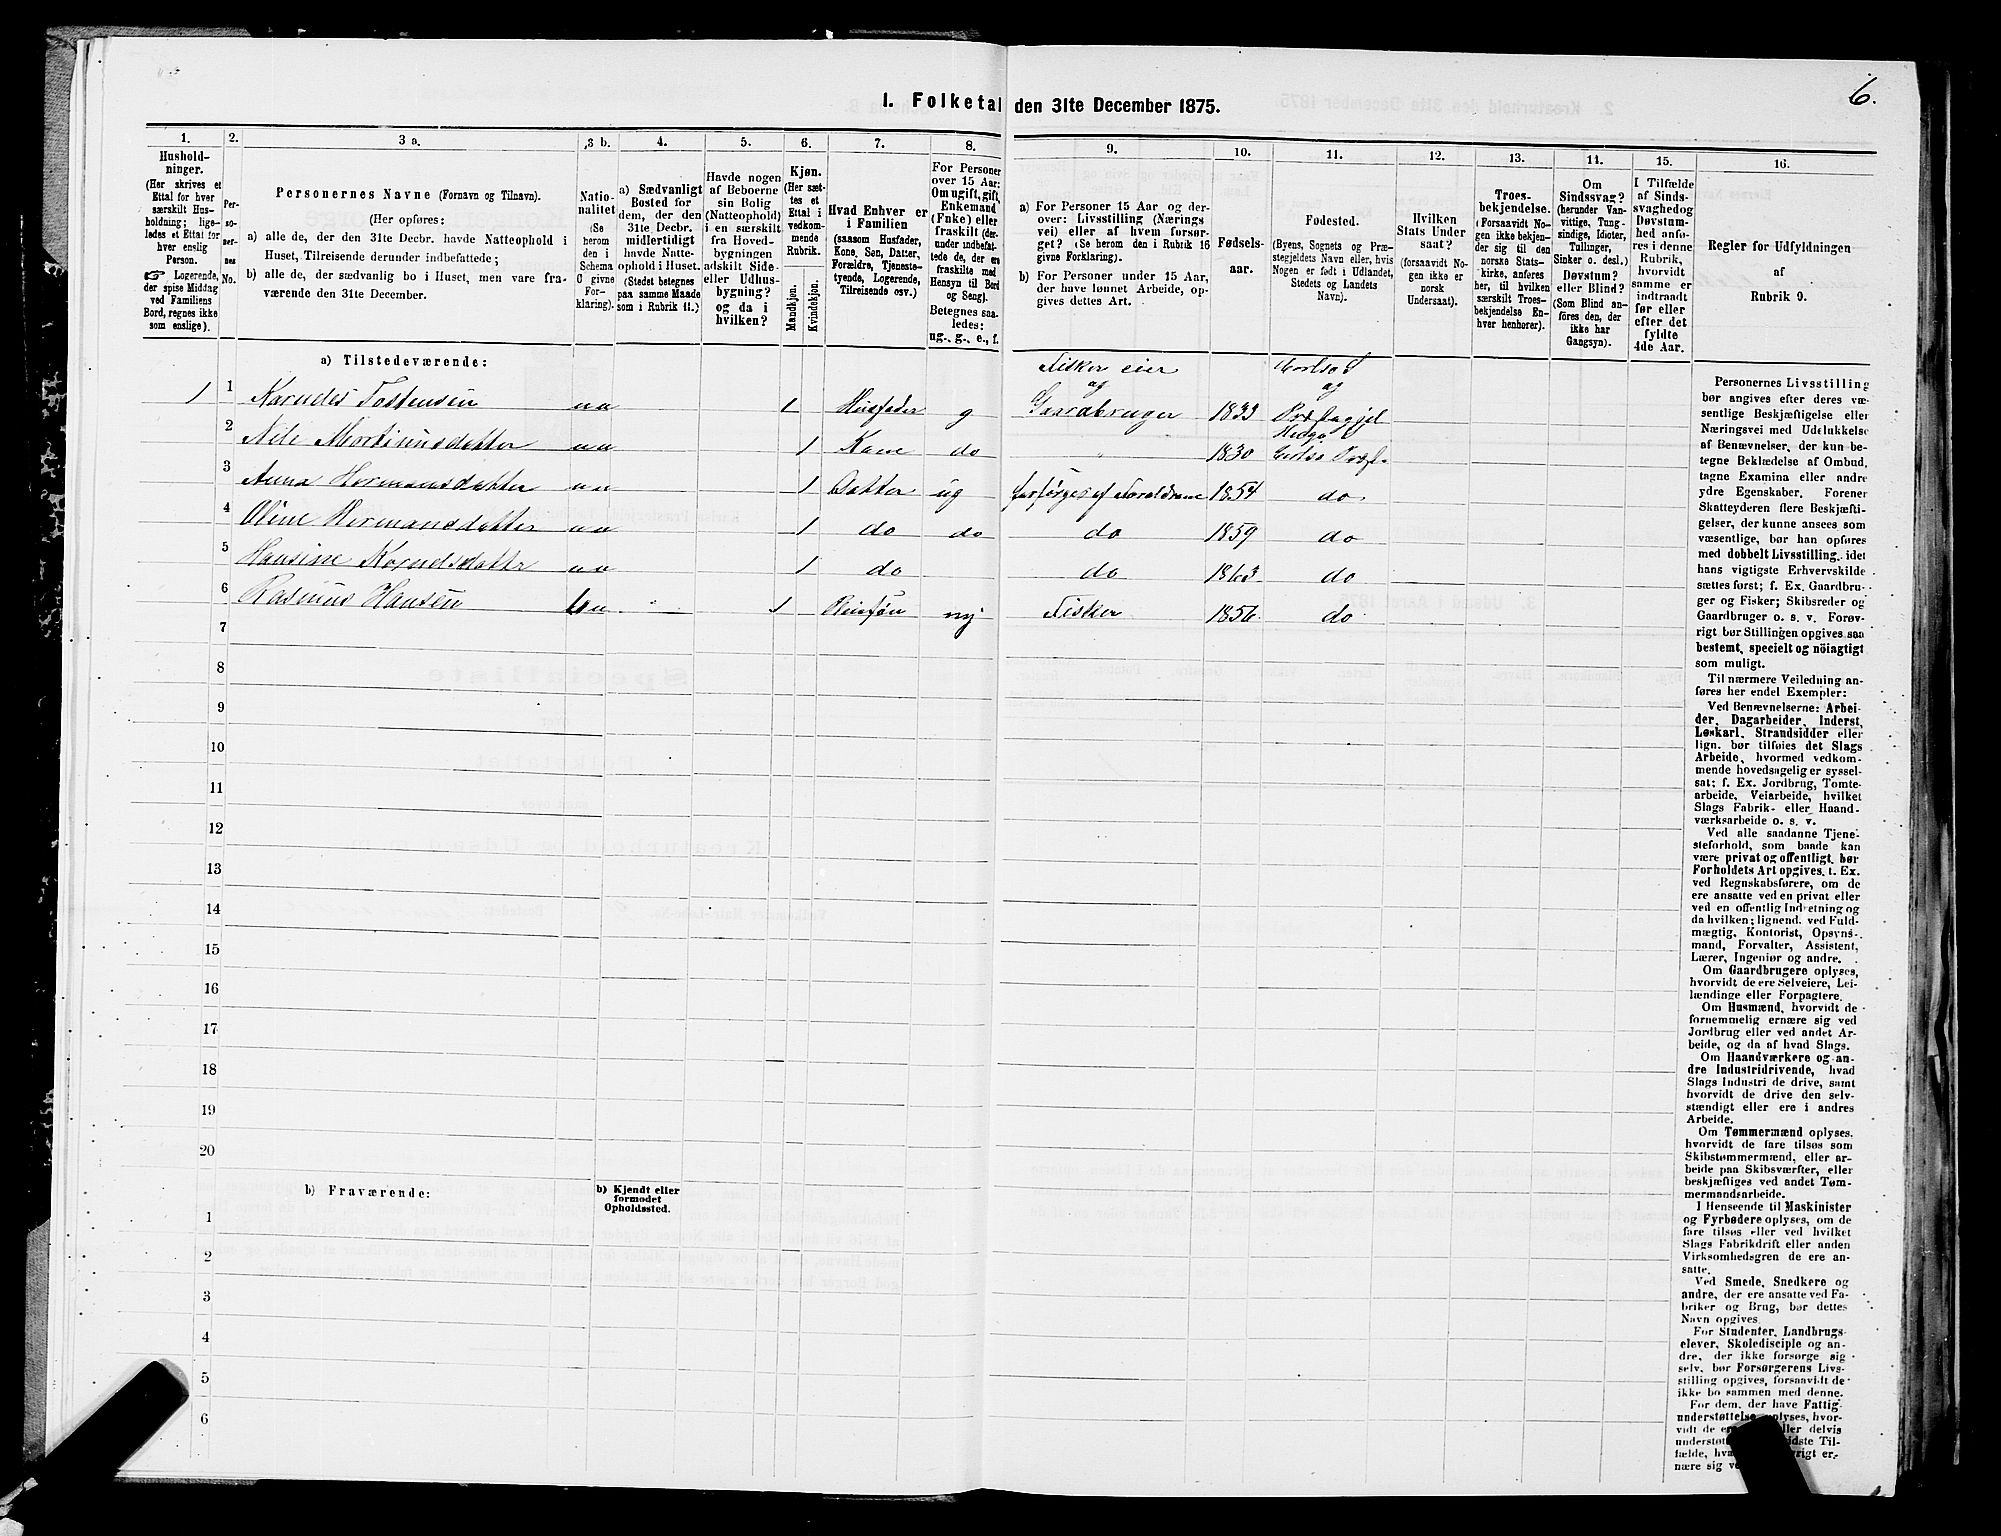 6.
1. Folketal den 31te December 1875.
1.
2.
3 a.
3 b.
4.
5.
6.
7.
8.
9.
10.
11.
12.
13.
14.
15.
16.
Hushold-
ninger.
(Her skrives et
Ettal for hver
særskilt Hus-
holdning; lige-
ledes et Ettal for
hver enslig
Person.
☞ Logerende,
der spise Middag
ved Familiens
Bord, regnes ikke
som enslige).
Per-
so-
ner-
nes
No.
Personernes Navne (Fornavn og Tilnavn).
(Her opføres:
a) alle de, der den 31te Decbr. havde Natteophold i
Huset, Tilreisende derunder indbefattede;
b) alle de, der sædvanlig bo i Huset, men vare fra-
værende den 31te December.
Natio-
nalitet
(Se
herom
den i
Schema
C givne
For-
klaring).
a) Sædvanligt
Bosted for
dem, der den
31te Decbr.
midlertidigt
havde Natte-
ophold i Huset.
(Stedet betegnes
paa samme Maade
som i Rubrik 11.)
Havde nogen
af Beboerne
sin Bolig
(Natteophold)
i en særskilt
fra Hoved-
bygningen
adskilt Side-
eller Udhus-
bygning?
og da i
hvilken?
Kjøn.
(Her sæt-
tes et
Ettal i
vedkom-
mende
Rubrik.
Mandkjøn.
Kvindekjøn.
Hvad Enhver er
i Familien
(saasom Husfader,
Kone, Søn, Datter,
Forældre, Tjeneste-
tyende, Logerende,
Tilreisende osv.)
For Personer
over 15 Aar:
Om ugift, gift,
Enkemand
(Enke) eller
fraskilt (der-
under indbefat-
tede de, der ere
fraskilte med
Hensyn til Bord
og Seng).
Betegnes saa-
ledes:
ug., g., e., f.
a) For Personer 15 Aar og der-
over: Livsstilling (Nærings
vei) eller af hvem forsør-
get? (Se herom den i Rubrik 16
givne Forklaring).
b) For Personer under 15 Aar,
der have lønnet Arbeide, op-
gives dettes Art.
Fødsels-
aar.
Fødested.
(Byens, Sognets og Præ-
stegjeldets Navn eller, hvis
Nogen er født i Udlandet,
Stedets og Landets
Navn).
Hvilken
Stats Under
saat?
(forsaavidt No-
gen ikke er
norsk
Undersaat).
Troes-
bekjendelse.
(Forsaavidt No-
gen ikke bekjen-
der sig til den
norske Stats-
kirke, anføres
her, til hvilken
særskilt Troes-
bekjendelse En-
hver henhører).
Om
Sindssvag?
(herunder Van-
vittige, Tung-
sindige, Idioter,
Tullinger,
Sinker o. desl.)
Døvstum?
eller Blind?
(Som Blind an-
føres den, der
ikke har
Gangsyn).
I Tilfælde
af Sinds-
svaghed og
Døvstum-
hed anfø-
res i denne
Rubrik,
hvorvidt
samme er
indtraadt
før eller
efter det
fyldte
4de Aar.
Regler for Udfyldningen
af
Rubrik 9.
a) Tilstedeværende:
1 1 Tostensen uu 1 Husfader g Fisker eier og Gaardbruger 1833
2 uu 1 Kone do 1830
3 Anna Hermansdatter uu 1 Datter ug forsørges af Forældrene 1854 do
4 Oline Hermansdatter uu 1 do do do 1859 do
5 Hansine uu 1 do do 1863 do
6 Rasmus Hansen 1 Fisker 1856 do
7
8
9
10
11
12
13
14
15
16
17
18
19
20
b) Fraværende:
b) Kjendt eller
formodet
Opholdssted.
1
2
3
4
5
6
Personernes Livsstilling
bør angives efter deres væ-
sentlige Beskjæftigelse eller
Næringsvei med Udelukkelse
af Benævnelser, der kun be-
tegne Beklædelse af Ombud,
tagne Examina eller andre
ydre Egenskaber. Forener
Skatteyderen flere Beskjæfti-
gelser, der kunne ansees som
væsentlige, bør han opføres
med dobbelt Livsstilling, idet
hans vigtigste Erhvervskilde
sættes først; f. Ex. Gaardbru-
ger og Fisker; Skibsreder og
Gaardbruger o. s. v. Forøv-
rigt bør Stillingen opgives saa
bestemt, specielt og nöiagtigt
som muligt.
Til nærmere Veiledning an-
føres her endel Exempler:
Ved Benævnelserne: Arbei-
der, Dagarbeider, Inderst,
Løskarl, Strandsidder eller
lign. bør tilføies det Slags
Arbeide, hvormed vedkom-
mende hovedsagelig er syssel-
sat; f. Ex. Jordbrug, Tomte-
arbeide, Veiarbeide, hvilket
Slags Fabrik- eller Haand-
værksarbeide o. s. v.
Ved alle saadanne Tjene-
steforhold, som baade kan
være privat og offentligt, bør
Forholdets Art opgives. t. Ex.
ved Regnskabsførere, om de
ere ansatte ved en privat eller
ved en offentlig Indretning og
da hvilken; lignend. ved Fuld-
mægtig, Kontorist, Opsyns-
mand, Forvalter, Assistent,
Lærer, Ingeniør og andre.
Om Gaardbrugere oplyses,
hvorvidt de ere Selveiere, Lei-
lændinge eller Forpagtere.
Om Husmænd, hvorvidt de
fornemmelig ernære sig ved
Jordbrug eller ved andet Ar-
beide, og da af hvad Slags.
Om Haandværkere og an-
dre Industridrivende, hvad
Slags Industri de drive, samt
hvorvidt de drive den selv-
stændigt eller ere i andres
Arbeide.
Om Tømmermænd oplyses,
hvorvidt de fare tilsøs som
Skibstømmermænd, eller ar-
beide paa Skibsværfter, eller
beskjæftiges ved andet Tøm-
mermandsarbeide.
I Henseende til Maskinister
og Fyrbødere oplyses, om de
fare tilsøs eller ved hvilket
Slags Fabrikdrift eller anden
Virksomhedsgren de ere an-
satte.
Ved Smede, Snedkere og
andre, der ere ansatte ved Fa-
briker og Brug, bør dettes
Navn opgives.
For Studenter, Landbrugs-
elever, Skoledisciple og an-
dre, der ikke forsørge sig
selv, bør Forsørgerens Livs-
stilling opgives, forsaavidt de
ikke bo sammen med denne.
For dem, der have Fattig-
understøttelse oplyses, hvor-
vidt de er eller delvis
understøt Til-
fælde, hva er-
nære sig ve